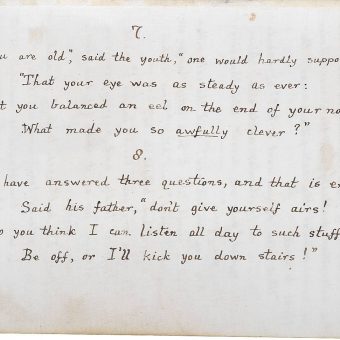 7.
u are old", said the youth, "one would hardly suppo
"That your eye was as steady as ever:
t you balanced an eel on the end of your no
What made you so awfully clever?"
8.
have answered three questions, and that is e
Said his father, "don't give yourself airs!
o you think I can listen all day to such stuff
Be off, or I'll kick you down stairs!"